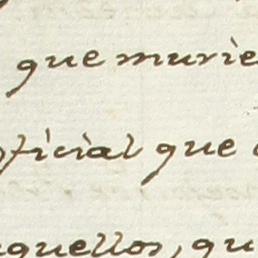 que murie
oficial que
aquellos, qu